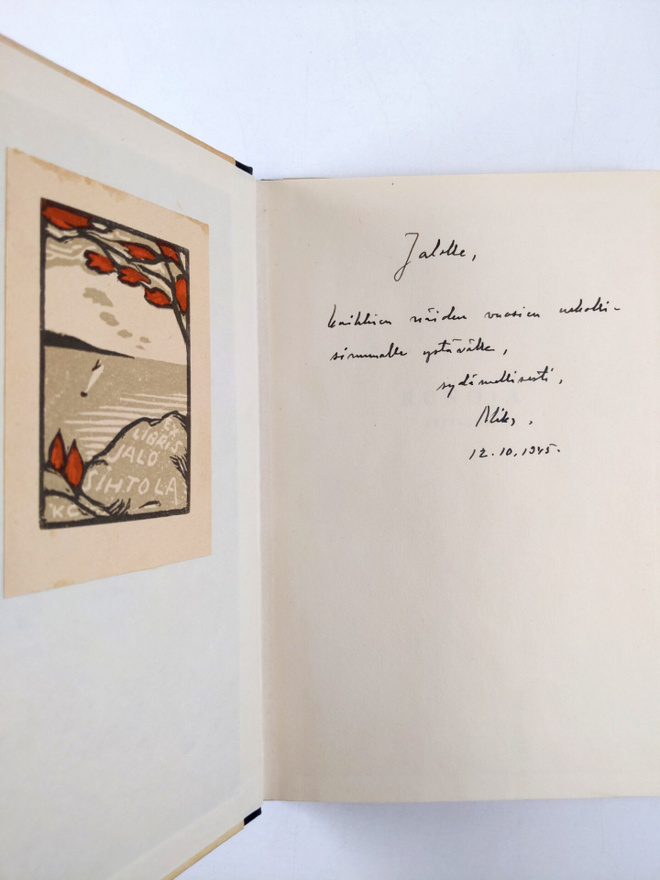 EX
LIBRIS
JALO
SIHTOLA
KC
Jalolle,
kaikkien näiden vuosien uskolli-
simmalle ystävälle,
sydämellisesti,
Mika,
12.10.1945.